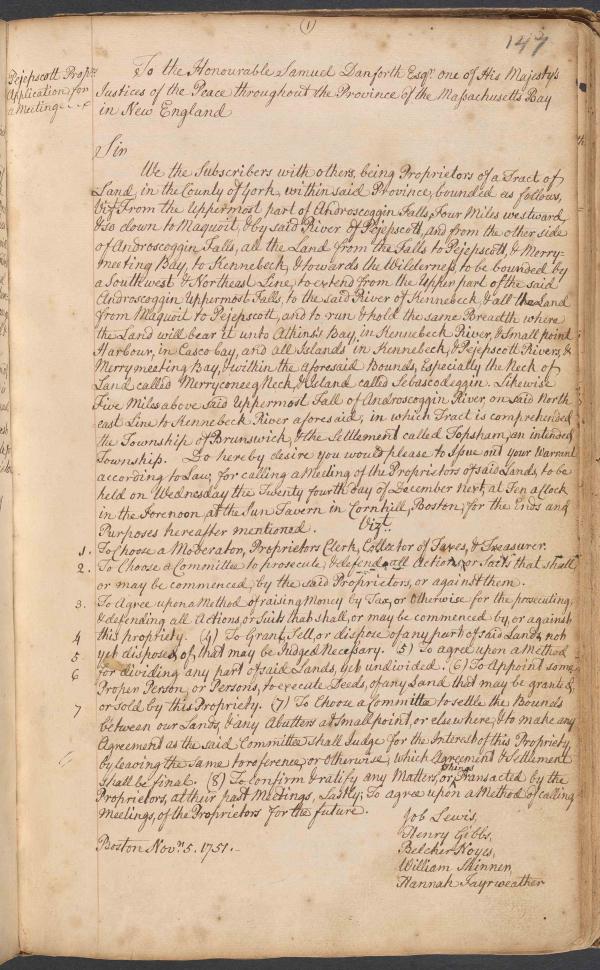 (1)
147
Pejepscott Prop.rs
Application for
a Meeting
To the Honourable Samuel Danforth Esq.r one of His Majesty's
Justices of the Peace throughout the Province of the Massachusetts Bay
in New England
Sir
We the Subscribers with others, being Proprietors of a Tract of
Land, in the County of York, within said Province, bounded as follows,
Vizt From the Uppermost part of Androscoggin Falls, Four Miles westward,
& so down to Maquoit, & by said River of Pejepscott, and from the other side
of Androscoggin Falls, all the Land from the Falls to Pejepscott, & Merry-
meeting Bay, to Kennebeck, & towards the Wilderness, to be bounded by
a Southwest & Northeast Line, to extend from the Upper part of the said
Androscoggin Uppermost Falls, to the said River of Kennebeck, & all the Land
from Maquoit to Pejepscott, and to run & hold the same Breadth where
the Land will bear it unto Atkins's Bay, in Kennebeck River, & Small point
Harbour, in Casco bay, and all Islands in Kennebeck, & Pejepscott Rivers, &
Merrymeeting Bay, & within the aforesaid Bounds, Especially the Neck of
Land called Merryconeeg Neck, & Island called Sebascodeggin. Likewise
Five Miles above said Uppermost Fall of Androscoggin River, on said North
east Line to Kennebeck River aforesaid; in which Tract is comprehended
the Township of Brunswick, & the Settlement called Topsham, an intended
Township. Do hereby desire you would please to Issue out your Warrant
according to Law, for calling a Meeting of the Proprietors of said Lands, to be
held on Wednesday the Twenty fourth day of December next, at Ten a Clock
in the Forenoon, at the Sun Tavern in Cornhill, Boston, for the Ends and
Purposes hereafter mentioned. Vizt.
1. To Choose a Moderator, Proprietors Clerk, Collector of Taxes, & Treasurer.
2. To Choose a Committee to prosecute, & defend all Actions, or Suits that shall
or may be commenced, by the said Proprietors, or against them.
3. To Agree upon a Method of raising Money by Tax, or otherwise for the prosecuting,
& defending all Actions, or Suits that shall, or may be commenced by, or against
4 this propriety. (4) To Grant, Sell, or dispose of any part of said Lands, not
5 yet disposed of, that may be Judged Necessary. (5) To agree upon a Method
6 for dividing any part of said Lands, yet undivided. (6) To Appoint some
Proper Person, or Persons, to execute Deeds, of any Land that may be granted,
7 or sold by this Propriety. (7) To Choose a Committe to settle the Bounds
between our Lands, & any Abutters at Small point, or elsewhere, & to make any
Agreement as the said Committee shall Judge for the Interest of this Propriety,
by leaving the Same to reference, or otherwise, which Agreement & Settlement
shall be final. (8) To confirm & ratify any Matters, or things Transacted by the
Proprietors, at their past Meetings, Lastly, To agree upon a Method of calling
Meetings, of the Proprietors for the future.
Job Lewis,
Henry Gibbs,
Belcher Noyes,
William Skinner,
Hannah Fayrweather
Boston Nov.r 5. 1751.